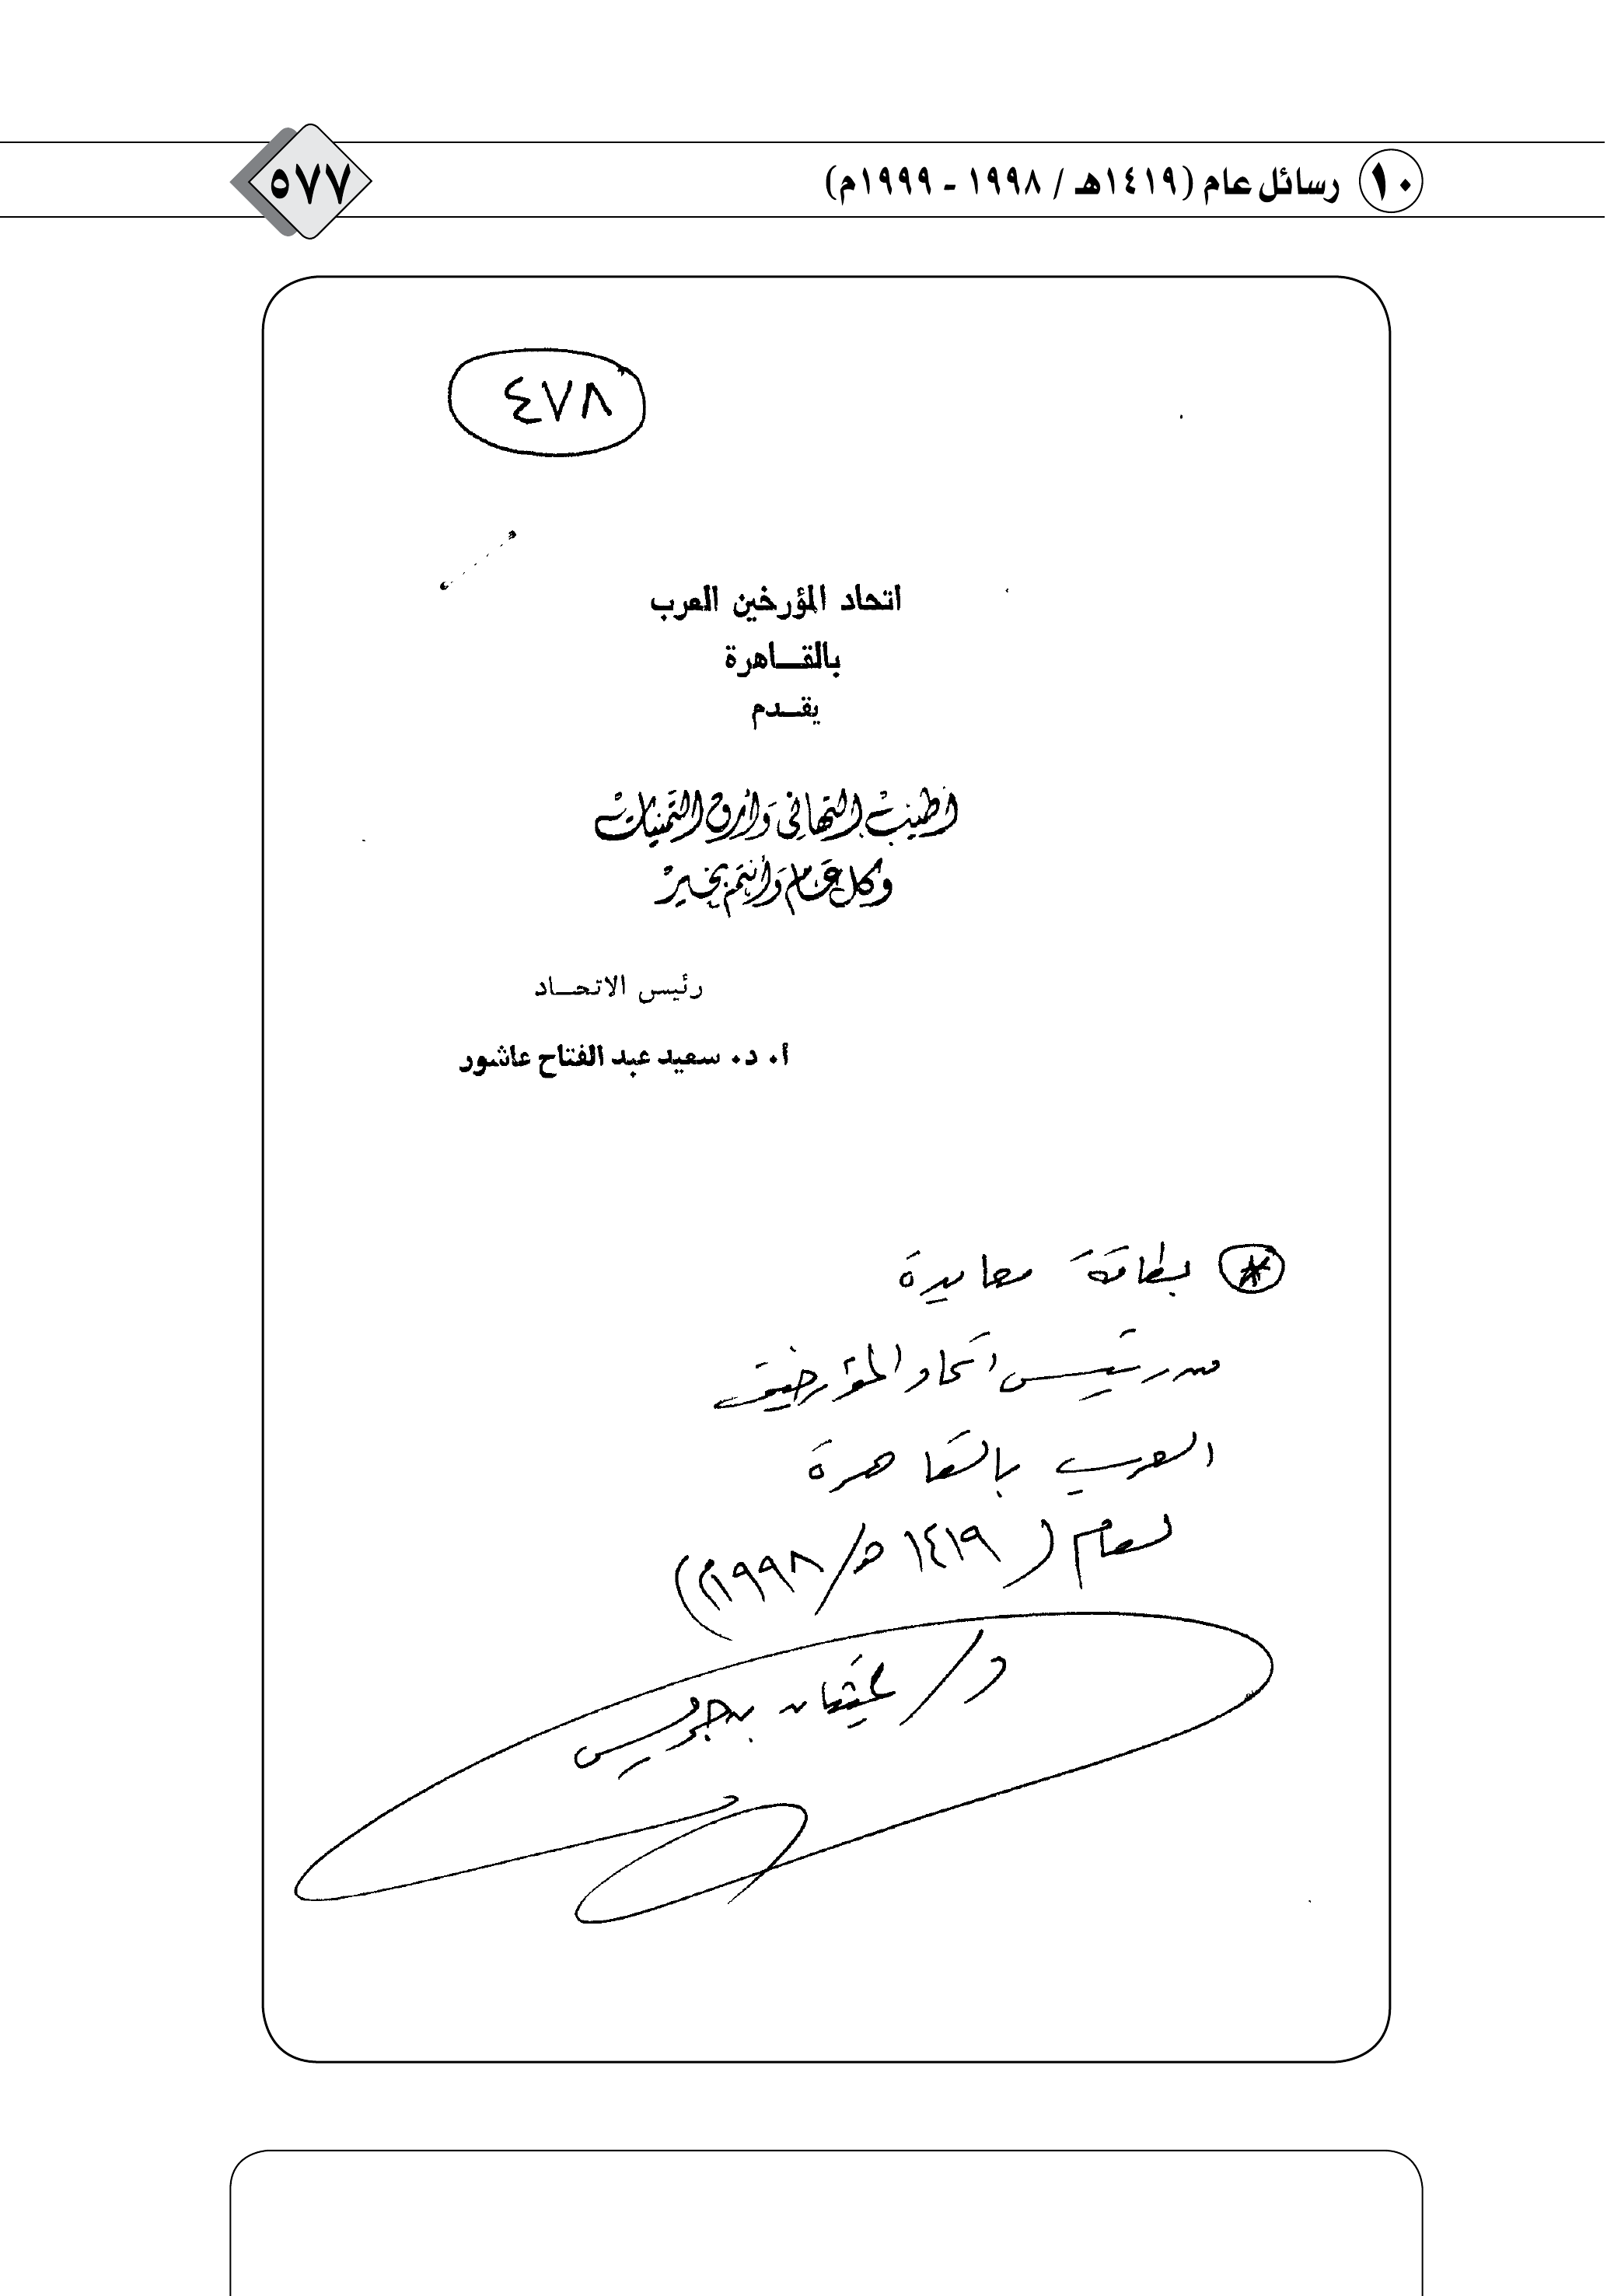 ١٠ رسائل عام (١٤١٩هـ / ١٩٩٨ - ١٩٩٩م) ٥٧٧
٤٧٨
اتحاد المؤرخين العرب
بالقـــاهرة
يقــدم
أطيب التهانى وأرق التمنيات
وكل عام وأنتم بخير
رئيس الاتحـــاد
أ. د. سعيد عبد الفتاح عاشور
* بطاقة معايدة
من رئيس اتحاد المؤرخين
العرب بالقاهرة
لعام (١٤١٩هـ/١٩٩٨م)
د/ غيثان بن جريس